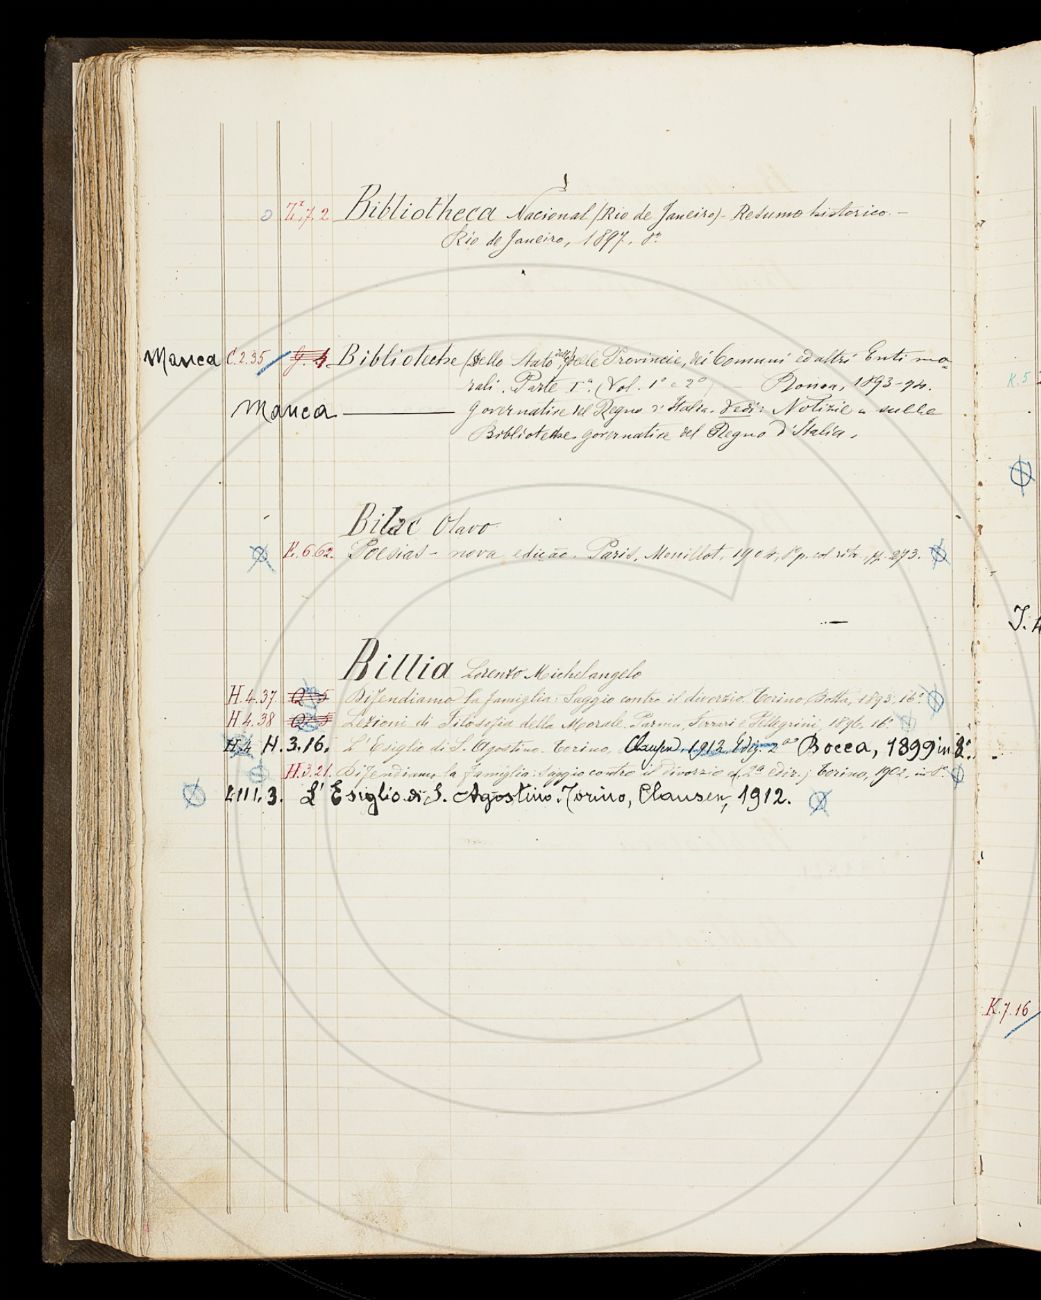 Z.7.2 Bibliotheca Nacional (Rio de Janeiro) - Resumo historico. -
Rio de Janeiro, 1897. 8º
Manca C.2.35 Biblioteche (dello Stato, delle Provincie, dei Comuni ed altri Enti mo-
rali. Parte Iª. (Vol. 1º e 2º Roma, 1893-94.
Manca ——— governative del Regno d'Italia. Vedi: Notizie sulle
Biblioteche governative del Regno d'Italia.
Bilac Olavo
E.6.62. Poesias - nova edição. Paris, 1904, 8º p. 273.
Billia Lorenzo Michelangelo
H.4.37 Difendiamo la famiglia: Saggio contro il divorzio. Torino, 1893, 16º
H.4.38 Lezioni di Filosofia della Morale. Parma, Ferrari e Pellegrini, 1896. 16º
H.4 H.3.16. L'Esiglio di S. Agostino. Torino, Clausen, 1912. Ediz. 2ª Bocca, 1899 in 8º.
H.3.21. Difendiamo la famiglia: Saggio contro il divorzio 2ª ediz.; Torino, 1902. in 8º.
LIII.3. L'Esiglio di S. Agostino. Torino, Clausen, 1912.
K.5
K.7.16